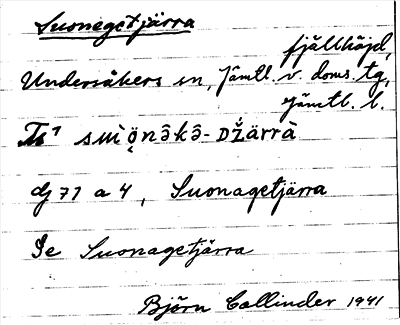 Suonagetjärra
fjällhöjd,
Undersåkers sn, Jämtl. v. doms. tg,
Jämtl. l.
smi̮ö̭nə̑kə̑-DŽärrà
dj 71 a 4, Suonagetjärra
Se Suonagetjärra
Björn Collinder 1941